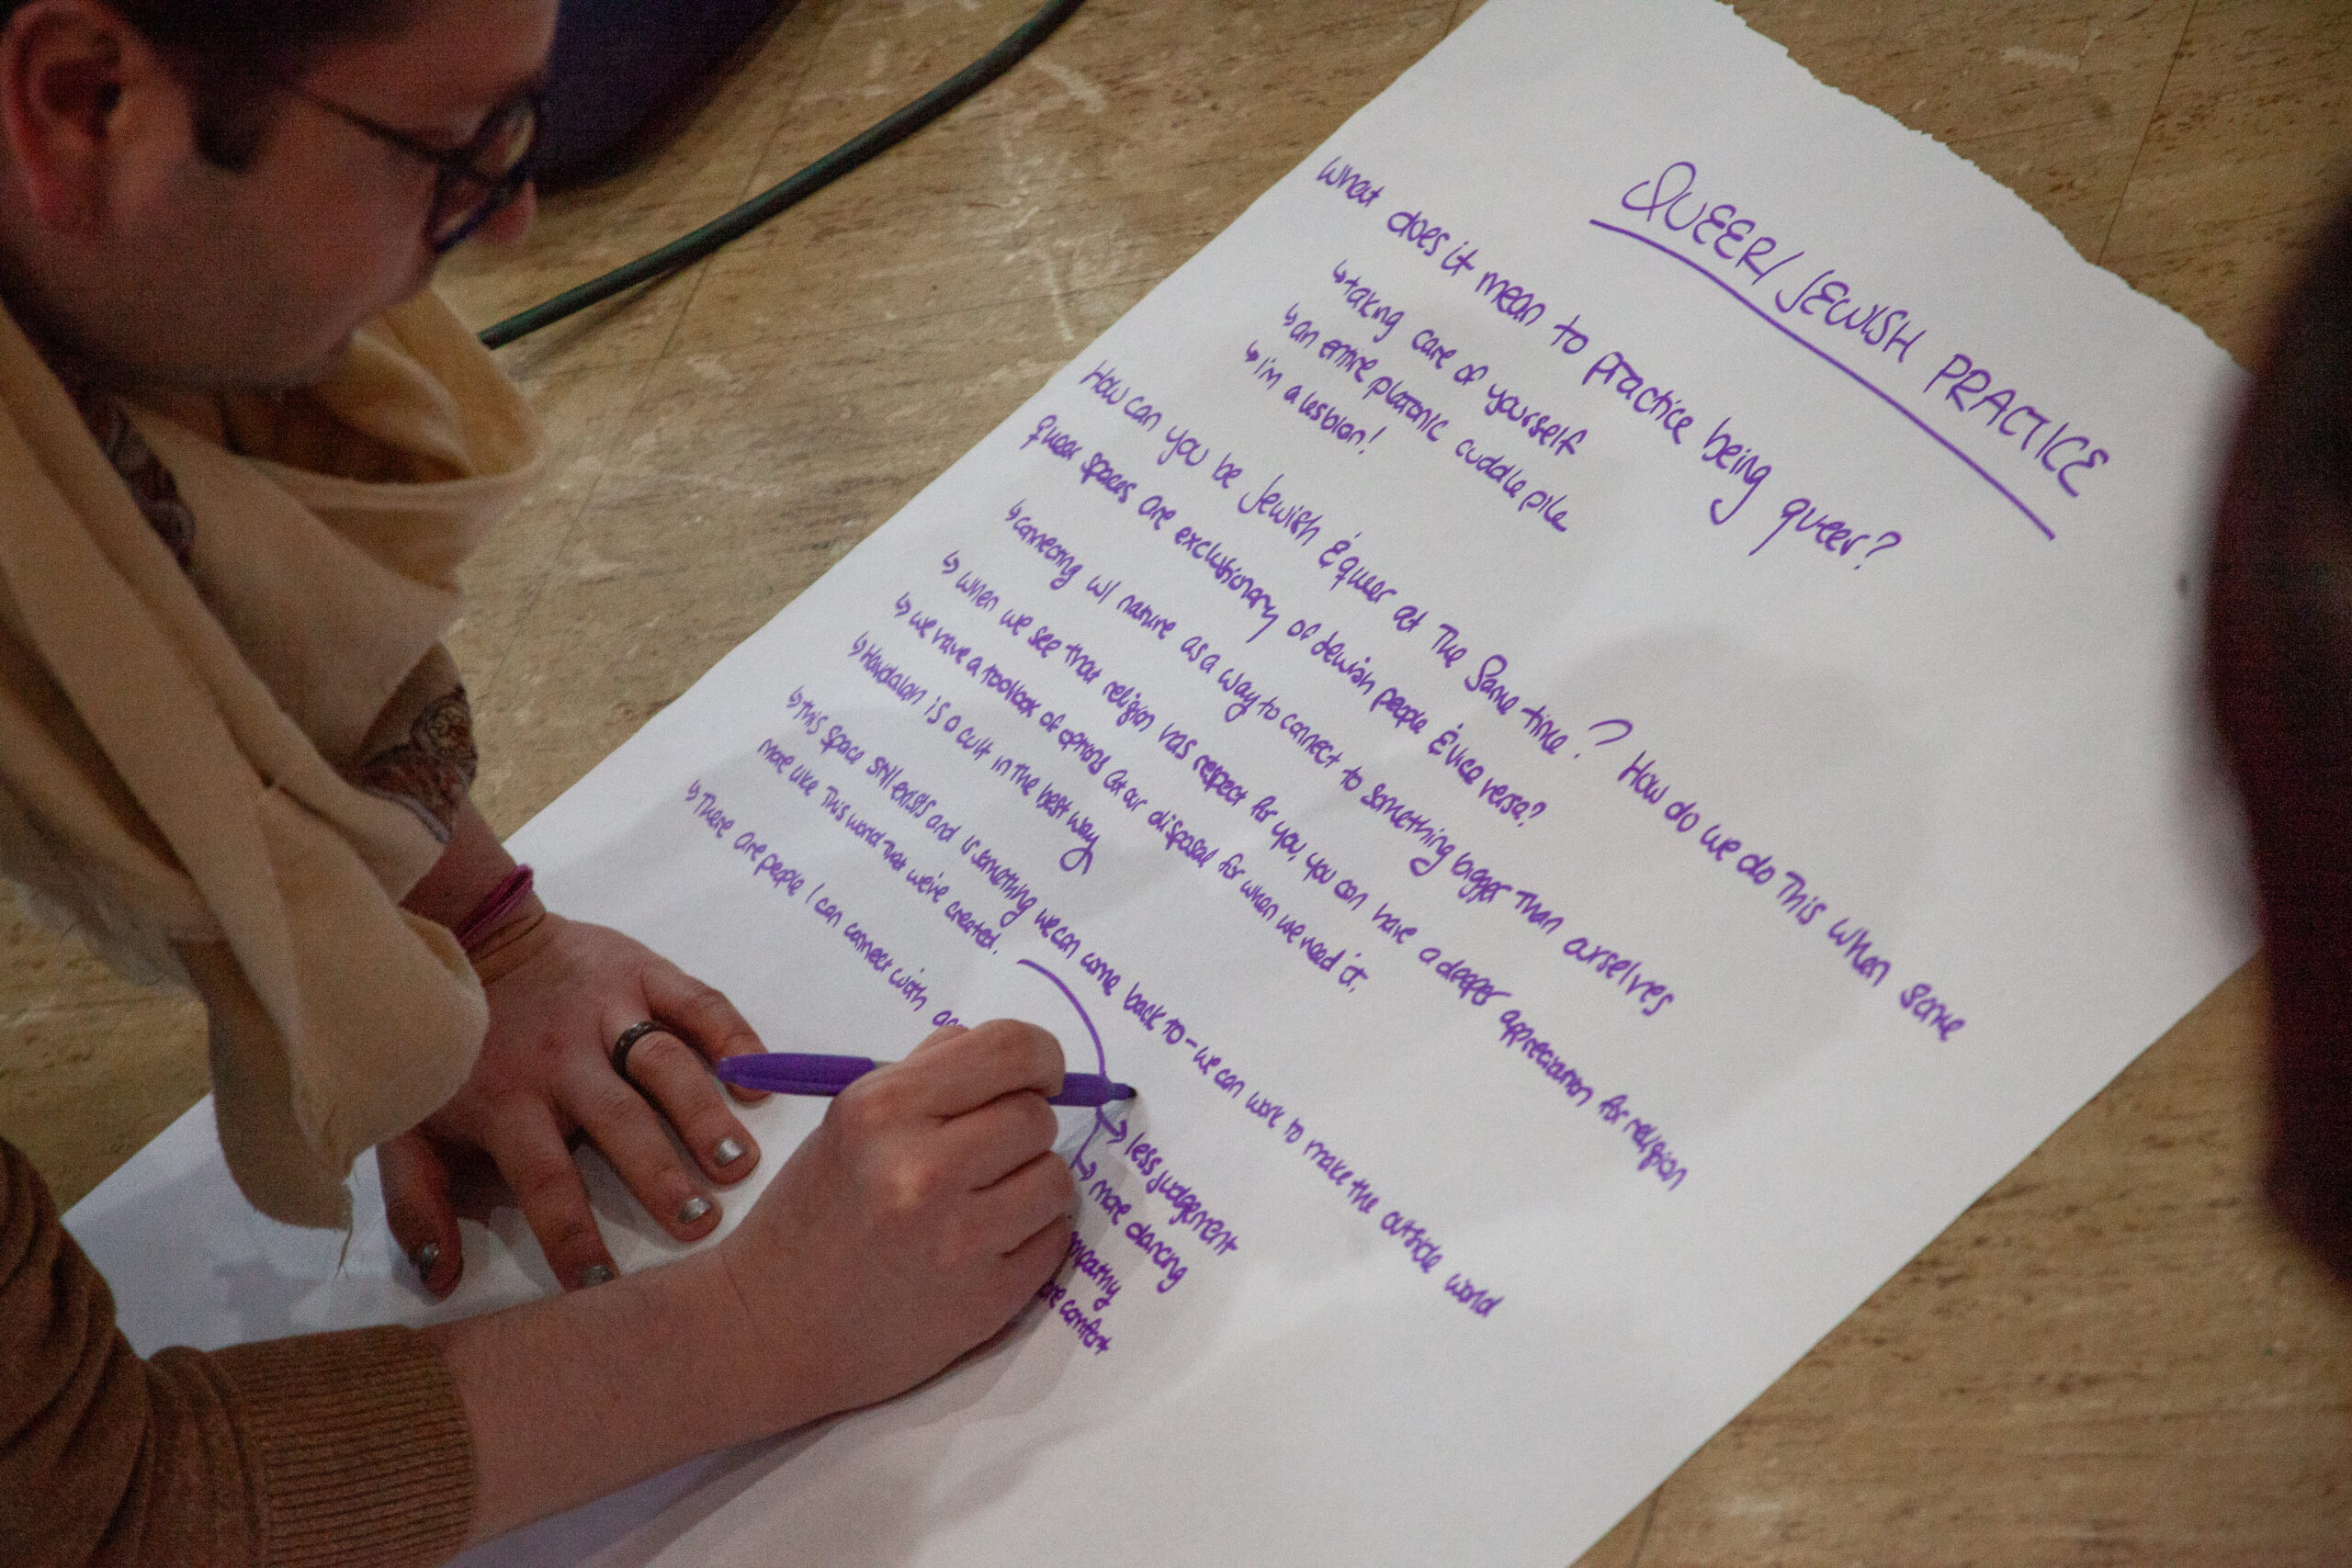 QUEER/JEWISH PRACTICE
What does it mean to practice being queer?
↳taking care of yourself
↳an entire platonic cuddle pile
↳I'm a lesbian!
How can you be Jewish & queer at The Same time? How do we do This when some
queer spaces are exclutionary of Jewish people & vice versa?
↳connecting w/ nature as a way to connect to something bigger Than ourselves
↳when we see that religion has respect for you, you can have a deeper appreciation for religion
↳we have a toolbox of options at our disposal for when we need it.
↳Havdalah is a cult in The best way
↳This space still exists and is something we can come back to - we can work to make the outside world
more like This world That we've created.
↳There are people I can connect with
↳less judgement
↳more dancing
mpathy
ore comfort